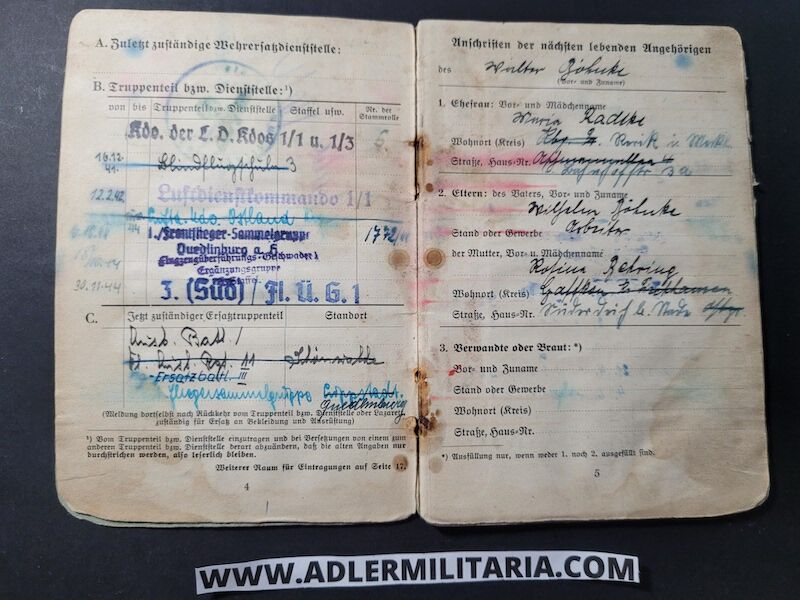 A. Zuletzt zuständige Wehrersatzdienststelle:
B. Truppenteil bzw. Dienststelle:¹)
von bis Truppenteil bzw. Dienststelle Staffel usw. Nr. der Stammrolle
Kdo. der L. D. Kdos 1/1 u. 1/3 6
16.12. 41. Blindflugschule 3
12.2.42 Luftdienstkommando 1/1
Luftd. Kdo. Ostland
1./Frontflieger-Sammelgruppe 1772
Quedlinburg a. H.
Flugzeugüberführungs-Geschwader 1
Ergänzungsgruppe
30.11.44 3. (Süd) / Fl. Ü. G. 1
C. Jetzt zuständiger Ersatztruppenteil Standort
Ausb. Batl. 1
Fl. Ausb. Rgt. 11 Schönwalde
Ersatzbatl. III
Fliegersammelgruppe
Quedlinburg
(Meldung dortselbst nach Rückkehr vom Truppenteil bzw. Dienststelle oder Lazarett
zuständig für Ersatz an Bekleidung und Ausrüstung)
¹) Vom Truppenteil bzw. Dienststelle einzutragen und bei Versetzungen von einem zum
anderen Truppenteil bzw. Dienststelle derart abzuändern, daß die alten Angaben nur
durchstrichen werden, also leserlich bleiben.
Weiterer Raum für Eintragungen auf Seite 17.
4
Anschriften der nächsten lebenden Angehörigen
des Walter Böhnke
(Vor- und Zuname)
1. Ehefrau: Vor- und Mädchenname
Maria Radtke
Wohnort (Kreis) Rerik i. Meckl.
Straße, Haus-Nr. 3a
2. Eltern: des Vaters, Vor- und Zuname
Wilhelm Böhnke
Stand oder Gewerbe Arbeiter
der Mutter, Vor- u. Mädchenname
Rosina Behring
Wohnort (Kreis)
Straße, Haus-Nr.
3. Verwandte oder Braut: *)
Vor- und Zuname
Stand oder Gewerbe
Wohnort (Kreis)
Straße, Haus-Nr.
*) Ausfüllung nur, wenn weder 1. noch 2. ausgefüllt sind.
5
WWW.ADLERMILITARIA.COM